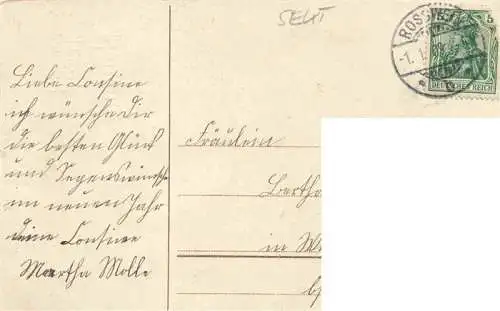 SELT
ROSSW
-1. 1.
5
DEUTSCHES REICH
Liebe Consine
ich wünsche Dir
die besten Glück
und Segenswünsche
im neuen Jahr
deine Consine
Martha Molle
Fräulein
Bertha
in W